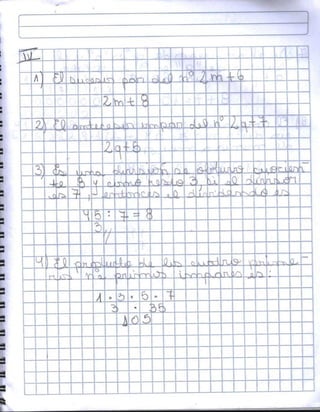 IV
1) El sucesor par del nº 2m+6
2m+8
2) El antecesor impar del nº 2q+7
2q+5
3) Es una división se obtuvo cuocien-
te 8 y como resto 3, si el divisor
es 7, entonces el dividendo es
45 : 7 = 8
3,,
4) El producto de los cuatro prime-
ros nº primos impares es:
1 · 3 · 5 · 7
3 · 35
105